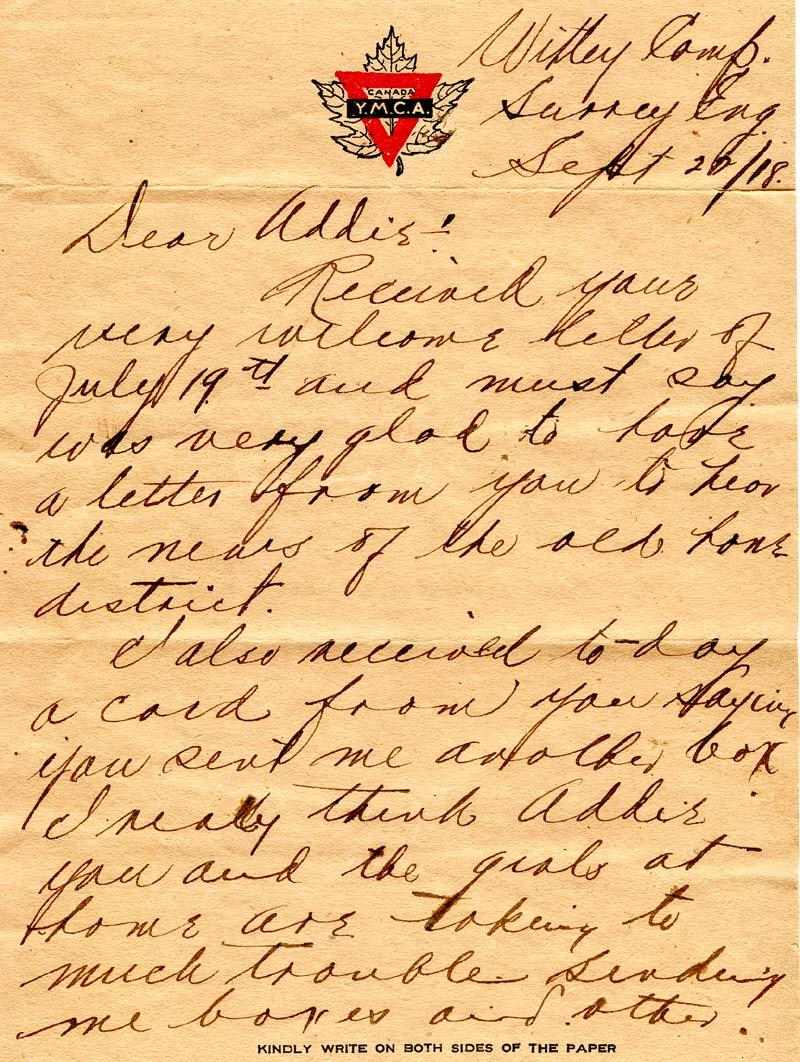 Witley Camp.
CANADA
Y.M.C.A.
Surrey Eng
Sept 20/18.
Dear Addie!
Received your
very welcome letter of
July 19th and must say
was very glad to have
a letter from you to hear
the news of the old home
district.
I also received to-day
a card from you saying
you sent me another box
I really think Addie
you and the girls at
home are taking to
much trouble sending
me boxes and other.
KINDLY WRITE ON BOTH SIDES OF THE PAPER